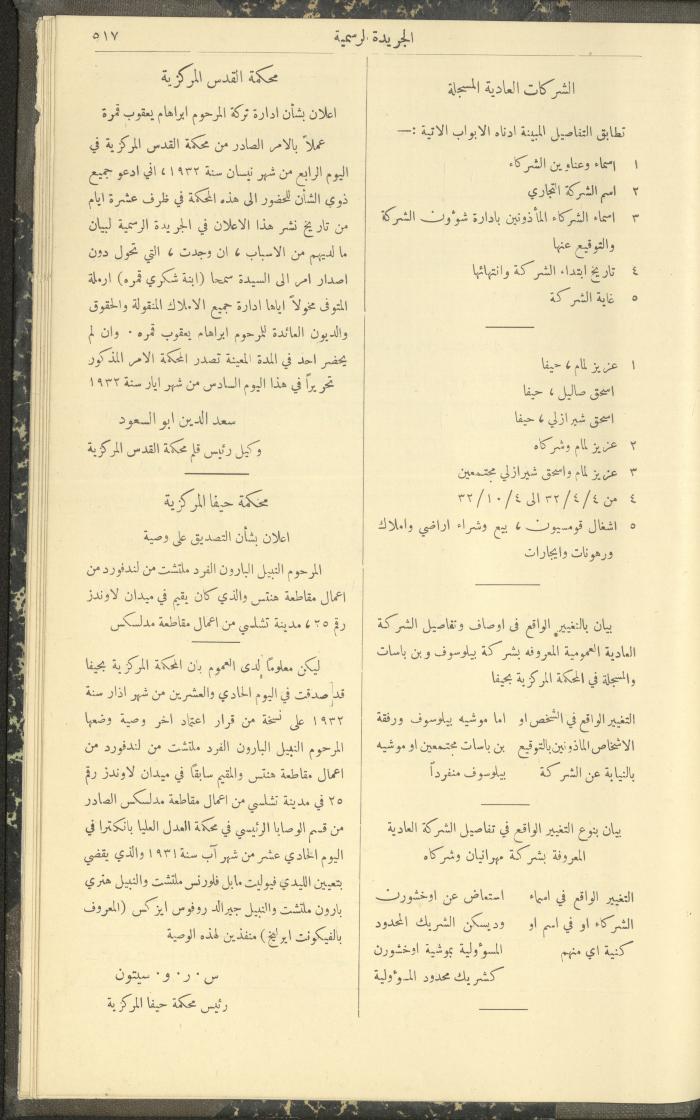 الجريدة الرسمية
٥١٧
الشركات العادية المسجلة
تطابق التفاصيل المبينة ادناه الابواب الاتية :—
١ اسماء وعناوين الشركاء
٢ اسم الشركة التجاري
٣ اسماء الشركاء المأذونين بادارة شوءون الشركة
والتوقيع عنها
٤ تاريخ ابتداء الشركة وانتهائها
٥ غاية الشركة
١ عزيز لمام ، حيفا
اسحق صاليل ، حيفا
اسحق شيرازلي ، حيفا
٢ عزيز لمام وشركاه
٣ عزيز لمام واسحق شيرازلي مجتمعين
٤ من ٣٢/٤/٤ الى ٣٢/١٠/٤
٥ اشغال قومسيون ، بيع وشراء اراضي واملاك
ورهونات وايجارات
بيان بالتغيير الواقع فى اوصاف وتفاصيل الشركة
العادية العمومية المعروفه بشركة بيلوسوف وبن باسات
والمسجلة في المحكمة المركزية بحيفا
التغيير الواقع في الشخص او اما موشيه بيلوسوف ورفقة
الاشخاص الماذونين بالتوقيع بن باسات مجتمعين او موشيه
بالنيابة عن الشركة بيلوسوف منفرداً
بيان بنوع التغيير الواقع في تفاصيل الشركة العادية
المعروفة بشركة مهرانيان وشركاه
التغيير الواقع في اسماء استعاض عن اوخشورن
الشركاء او في اسم او وديسكن الشريك المحدود
كنية اي منهم المسؤولية بموشية اوخشورن
كشريك محدود المسؤولية
محكمة القدس المركزية
اعلان بشأن ادارة تركة المرحوم ابراهام يعقوب قمرة
عملاً بالامر الصادر من محكمة القدس المركزية في
اليوم الرابع من شهر نيسان سنة ١٩٣٢ ، اني ادعو جميع
ذوي الشأن للحضور الى هذه المحكمة في ظرف عشرة ايام
من تاريخ نشر هذا الاعلان في الجريدة الرسمية لبيان
ما لديهم من الاسباب ، ان وجدت ، التي تحول دون
اصدار امر الى السيدة سمحا (ابنة شكري قمره) ارملة
المتوفى مخولاً اياها ادارة جميع الاملاك المنقولة والحقوق
والديون العائدة للمرحوم ابراهام يعقوب قمره . وان لم
يحضر احد في المدة المعينة تصدر المحكمة الامر المذكور
تحريراً في هذا اليوم السادس من شهر ايار سنة ١٩٣٢
سعد الدين ابو السعود
وكيل رئيس قلم محكمة القدس المركزية
محكمة حيفا المركزية
اعلان بشأن التصديق على وصية
المرحوم النبيل البارون الفرد ملتشت من لندفورد من
اعمال مقاطعة هنتس والذي كان يقيم في ميدان لاوندز
رقم ٢٥ ، مدينة تشلسي من اعمال مقاطعة مدلسكس
ليكن معلوماً لدى العموم بان المحكمة المركزية بحيفا
قد صدقت في اليوم الحادي والعشرين من شهر اذار سنة
١٩٣٢ على نسخة من قرار اعتماد اخر وصية وضعها
المرحوم النبيل البارون الفرد ملتشت من لندفورد من
اعمال مقاطعة هنتس والمقيم سابقاً في ميدان لاوندز رقم
٢٥ في مدينة تشلسي من اعمال مقاطعة مدلسكس الصادر
من قسم الوصايا الرئيسي في محكمة العدل العليا بانكلترا في
اليوم الحادي عشر من شهر آب سنة ١٩٣١ والذي يقضي
بتعيين الليدي فيوليت مابل فلورنس ملتشت والنبيل هنري
بارون ملتشت والنبيل جيرالد روفوس ايزكس (المعروف
بالفيكونت ايرليخ) منفذين لهذه الوصية
س . ر . و . سيتون
رئيس محكمة حيفا المركزية